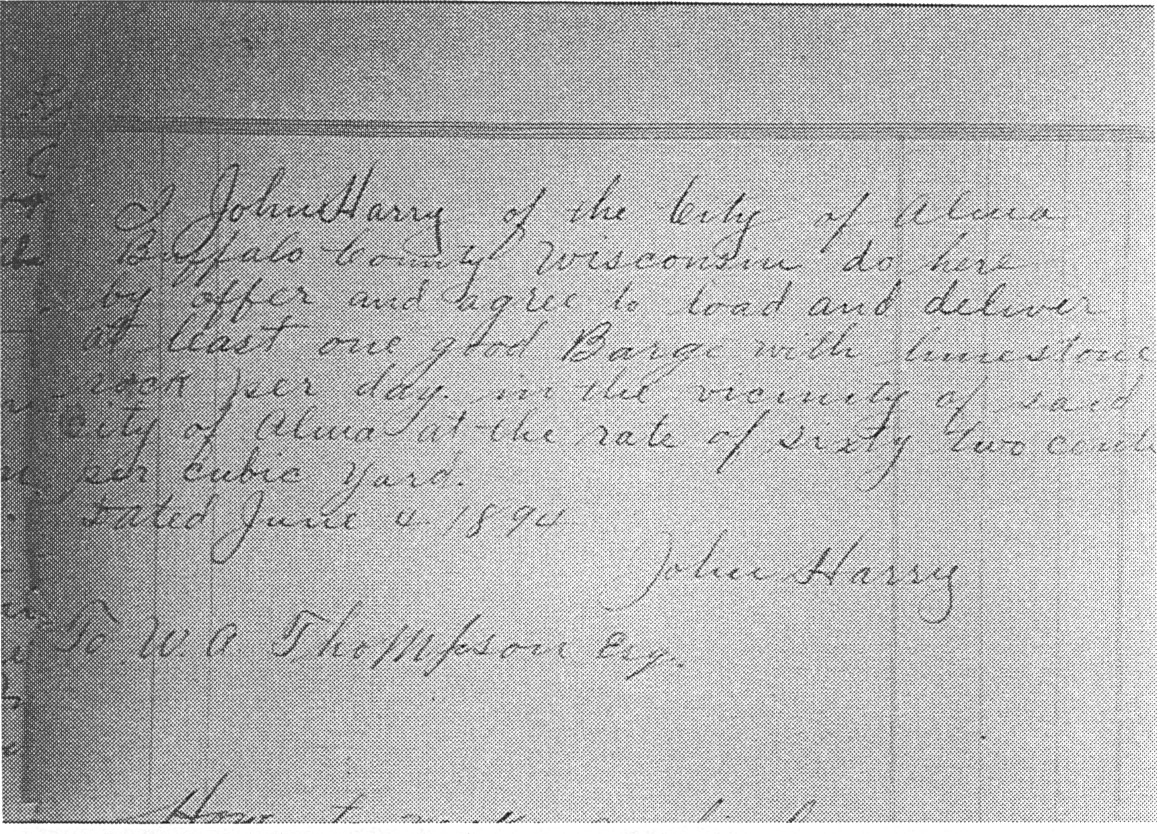 I John Harry of the City of Alma
Buffalo County Wisconsin do here
by offer and agree to load and deliver
at least one good Barge with limestone
rock per day. in the vicinity of said
City of Alma at the rate of sixty two cents
per cubic yard.
Dated June 4 1894
John Harry
To W. A Thompson Esq.
How to